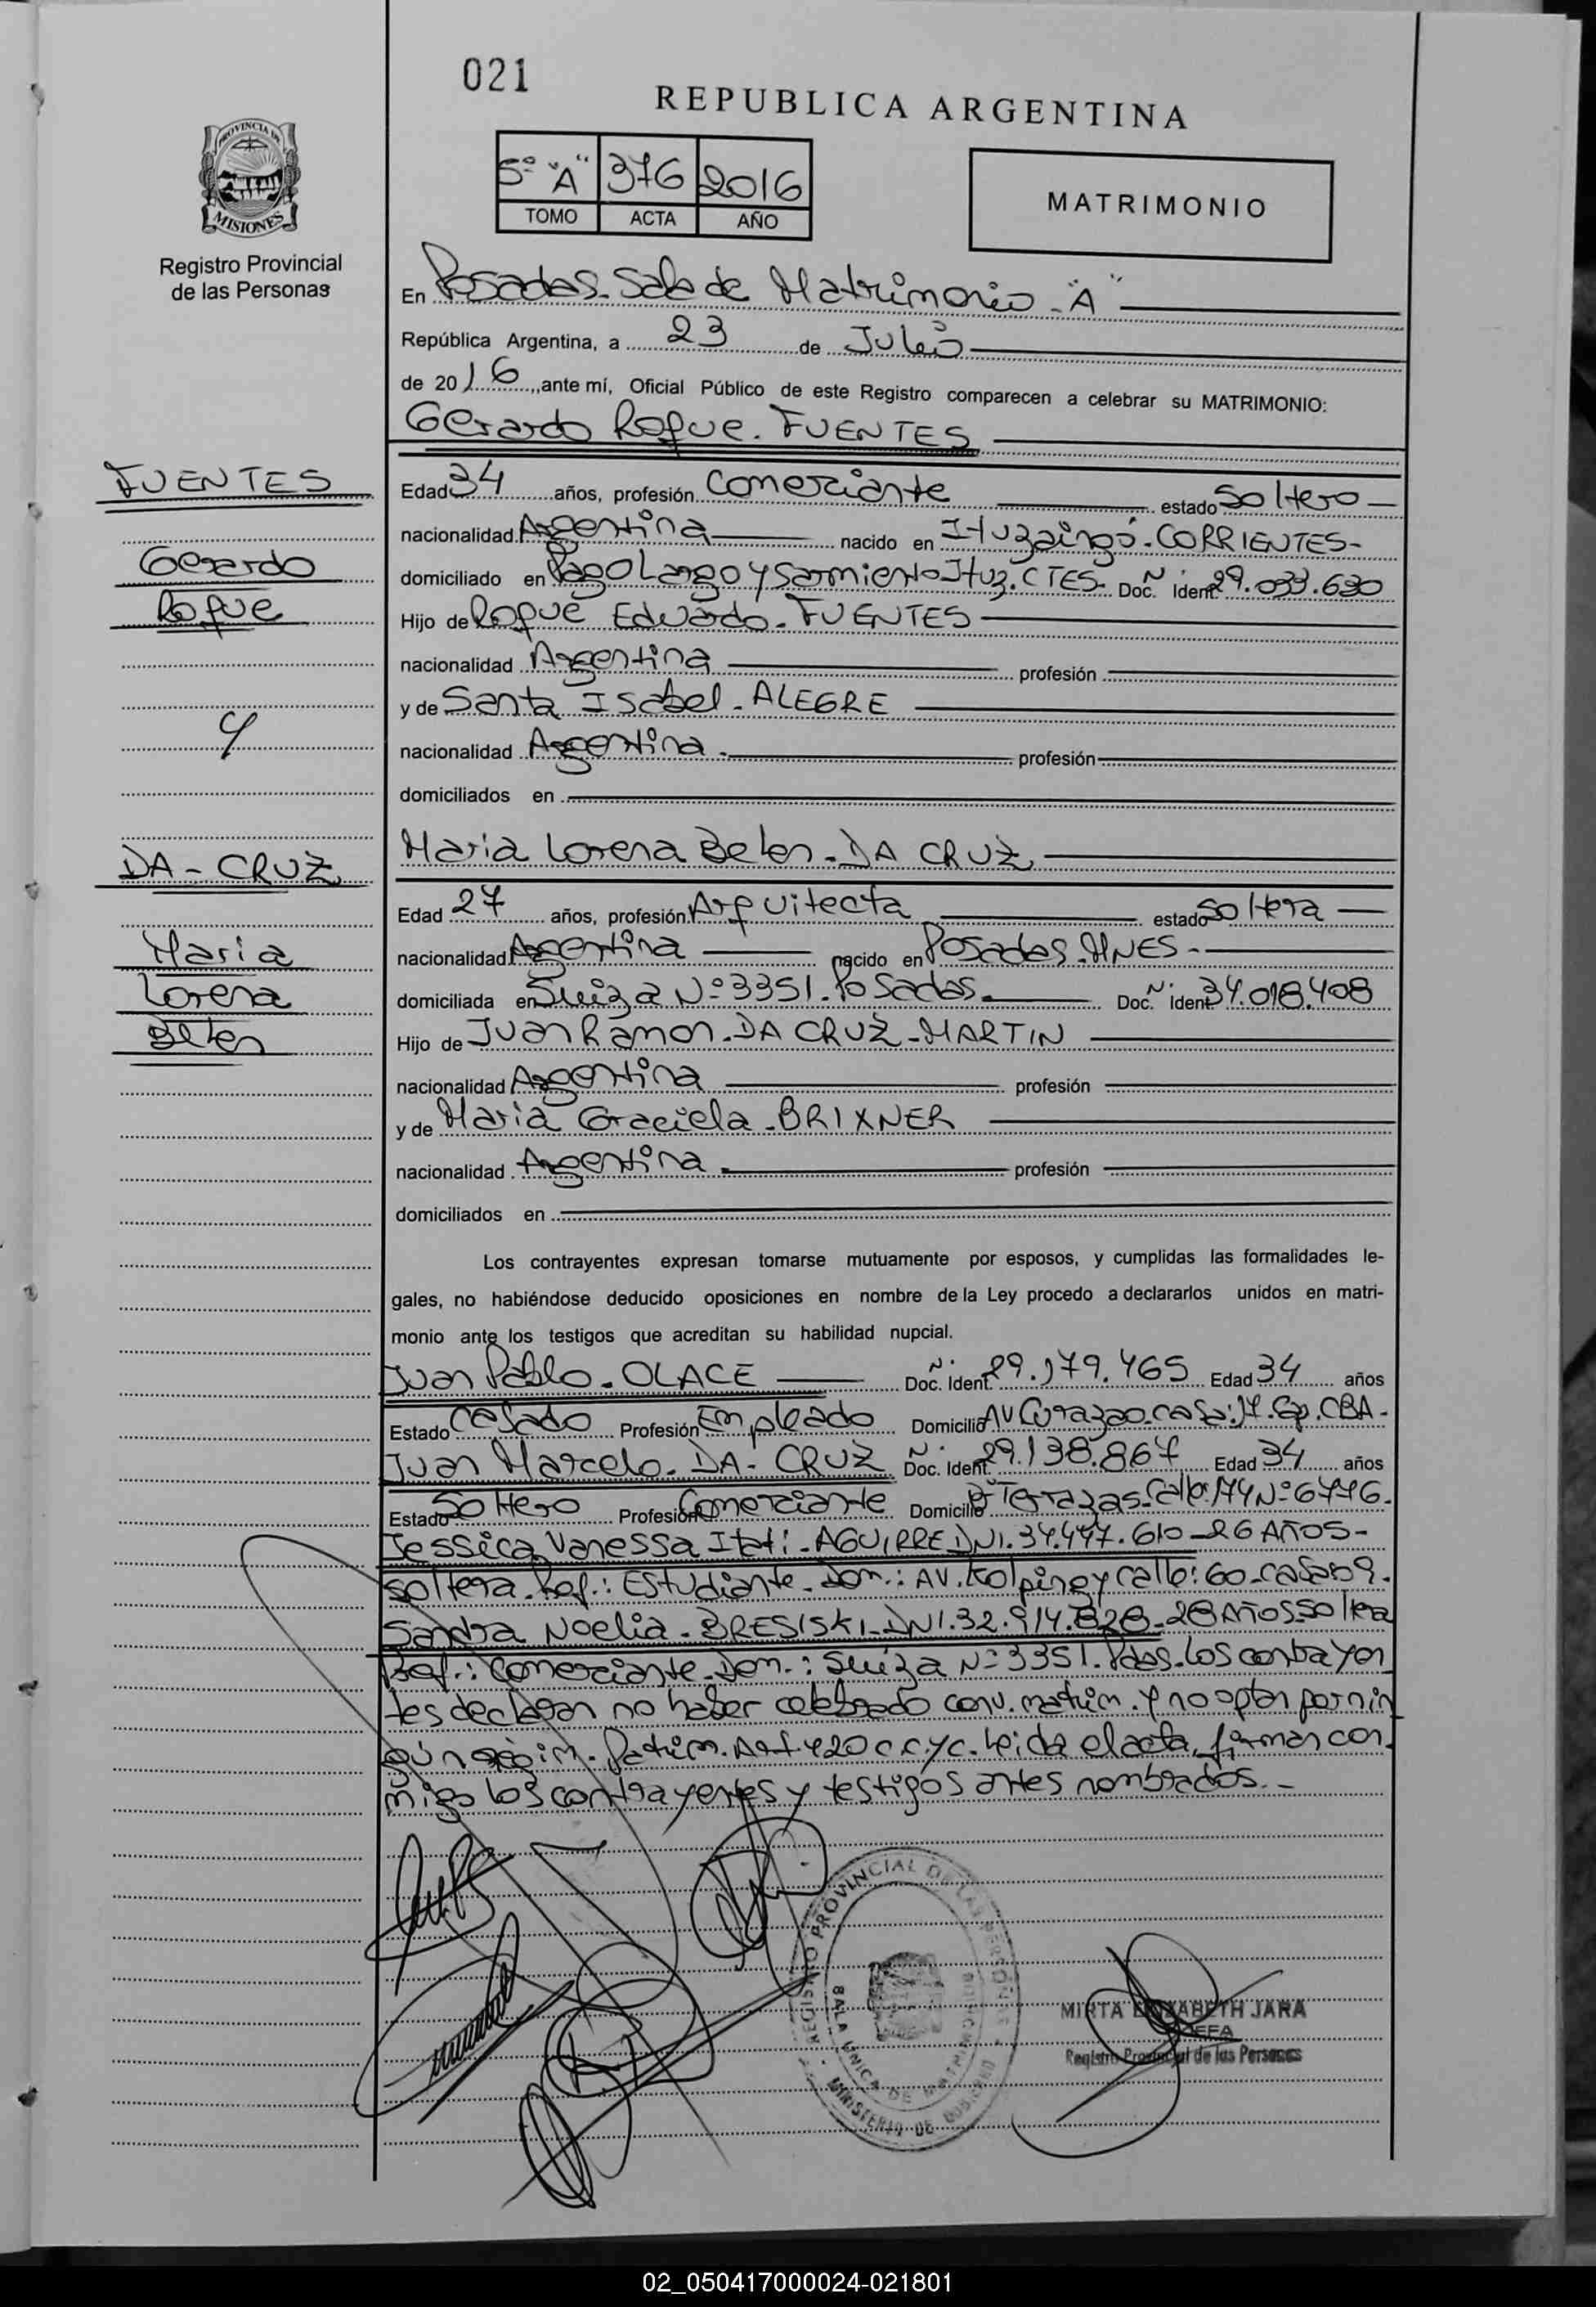 021
REPUBLICA ARGENTINA
5º "A" 376 2016
TOMO ACTA AÑO
MATRIMONIO
PROVINCIA DE
MISIONES
Registro Provincial
de las Personas
En Posadas. Sala de Matrimonio - "A"
República Argentina, a 23 de Julio
de 2016, ante mí, Oficial Público de este Registro comparecen a celebrar su MATRIMONIO:
Gerardo Roque. FUENTES
FUENTES
Gerardo
Roque
y
DA - CRUZ
Maria
Lorena
Belen
Edad 34 años, profesión Comerciante estado Soltero
nacionalidad Argentina nacido en Ituzaingó - CORRIENTES-
domiciliado en Pago Largo y Sarmiento Ituz. CTES- Doc. Nº Ident. 29.033.630
Hijo de Roque Eduardo - FUENTES
nacionalidad Argentina profesión
y de Santa Isabel - ALEGRE
nacionalidad Argentina - profesión
domiciliados en
Maria Lorena Belen - DA CRUZ
Edad 27 años, profesión Arquitecta estado Soltera
nacionalidad Argentina nacido en Posadas. MNES-
domiciliada en Suiza Nº 3351. Posadas. Doc. Nº Ident. 34.018.408
Hijo de Juan Ramon - DA CRUZ - MARTIN
nacionalidad Argentina profesión
y de Maria Graciela - BRIXNER
nacionalidad Argentina profesión
domiciliados en
Los contrayentes expresan tomarse mutuamente por esposos, y cumplidas las formalidades le-
gales, no habiéndose deducido oposiciones en nombre de la Ley procedo a declararlos unidos en matri-
monio ante los testigos que acreditan su habilidad nupcial.
Juan Pablo - OLACE Doc. Ident. Nº 29.179.465 Edad 34 años
Estado Casado Profesión Empleado Domicilio AV Curazao casa: CBA-
Juan Marcelo - DA - CRUZ Doc. Ident. Nº 29.138.867 Edad 34 años
Estado Soltero Profesión Comerciante Domicilio Terrazas Calle: 174 Nº 6776.
Jessica Vanessa Itati - AGUIRRE DNI. 34.477.610 - 26 AÑOS-
soltera. Prof.: Estudiante - Dom.: AV. Kolping y Calle: 60
Sandra Noelia - BRESISKI - DNI. 32.914.828 - 28 AÑOS Soltera
Prof.: Comerciante - Dom.: Suiza Nº 3351. Pdas. Los contrayen
tes declaran no haber celebrado conv. matrim. y no optan por nin
gún régim. Patrim. Art. 420 C.C.yC. Leida el acta, firman con
migo los contrayentes y testigos antes nombrados.-
REGISTRO PROVINCIAL DE LAS PERSONAS
SALA UNICA DE MATRIMONIOS
MINISTERIO DE GOBIERNO
MIRTA ELIZABETH JARA
JEFA
Registro Provincial de las Personas
02_050417000024-021801